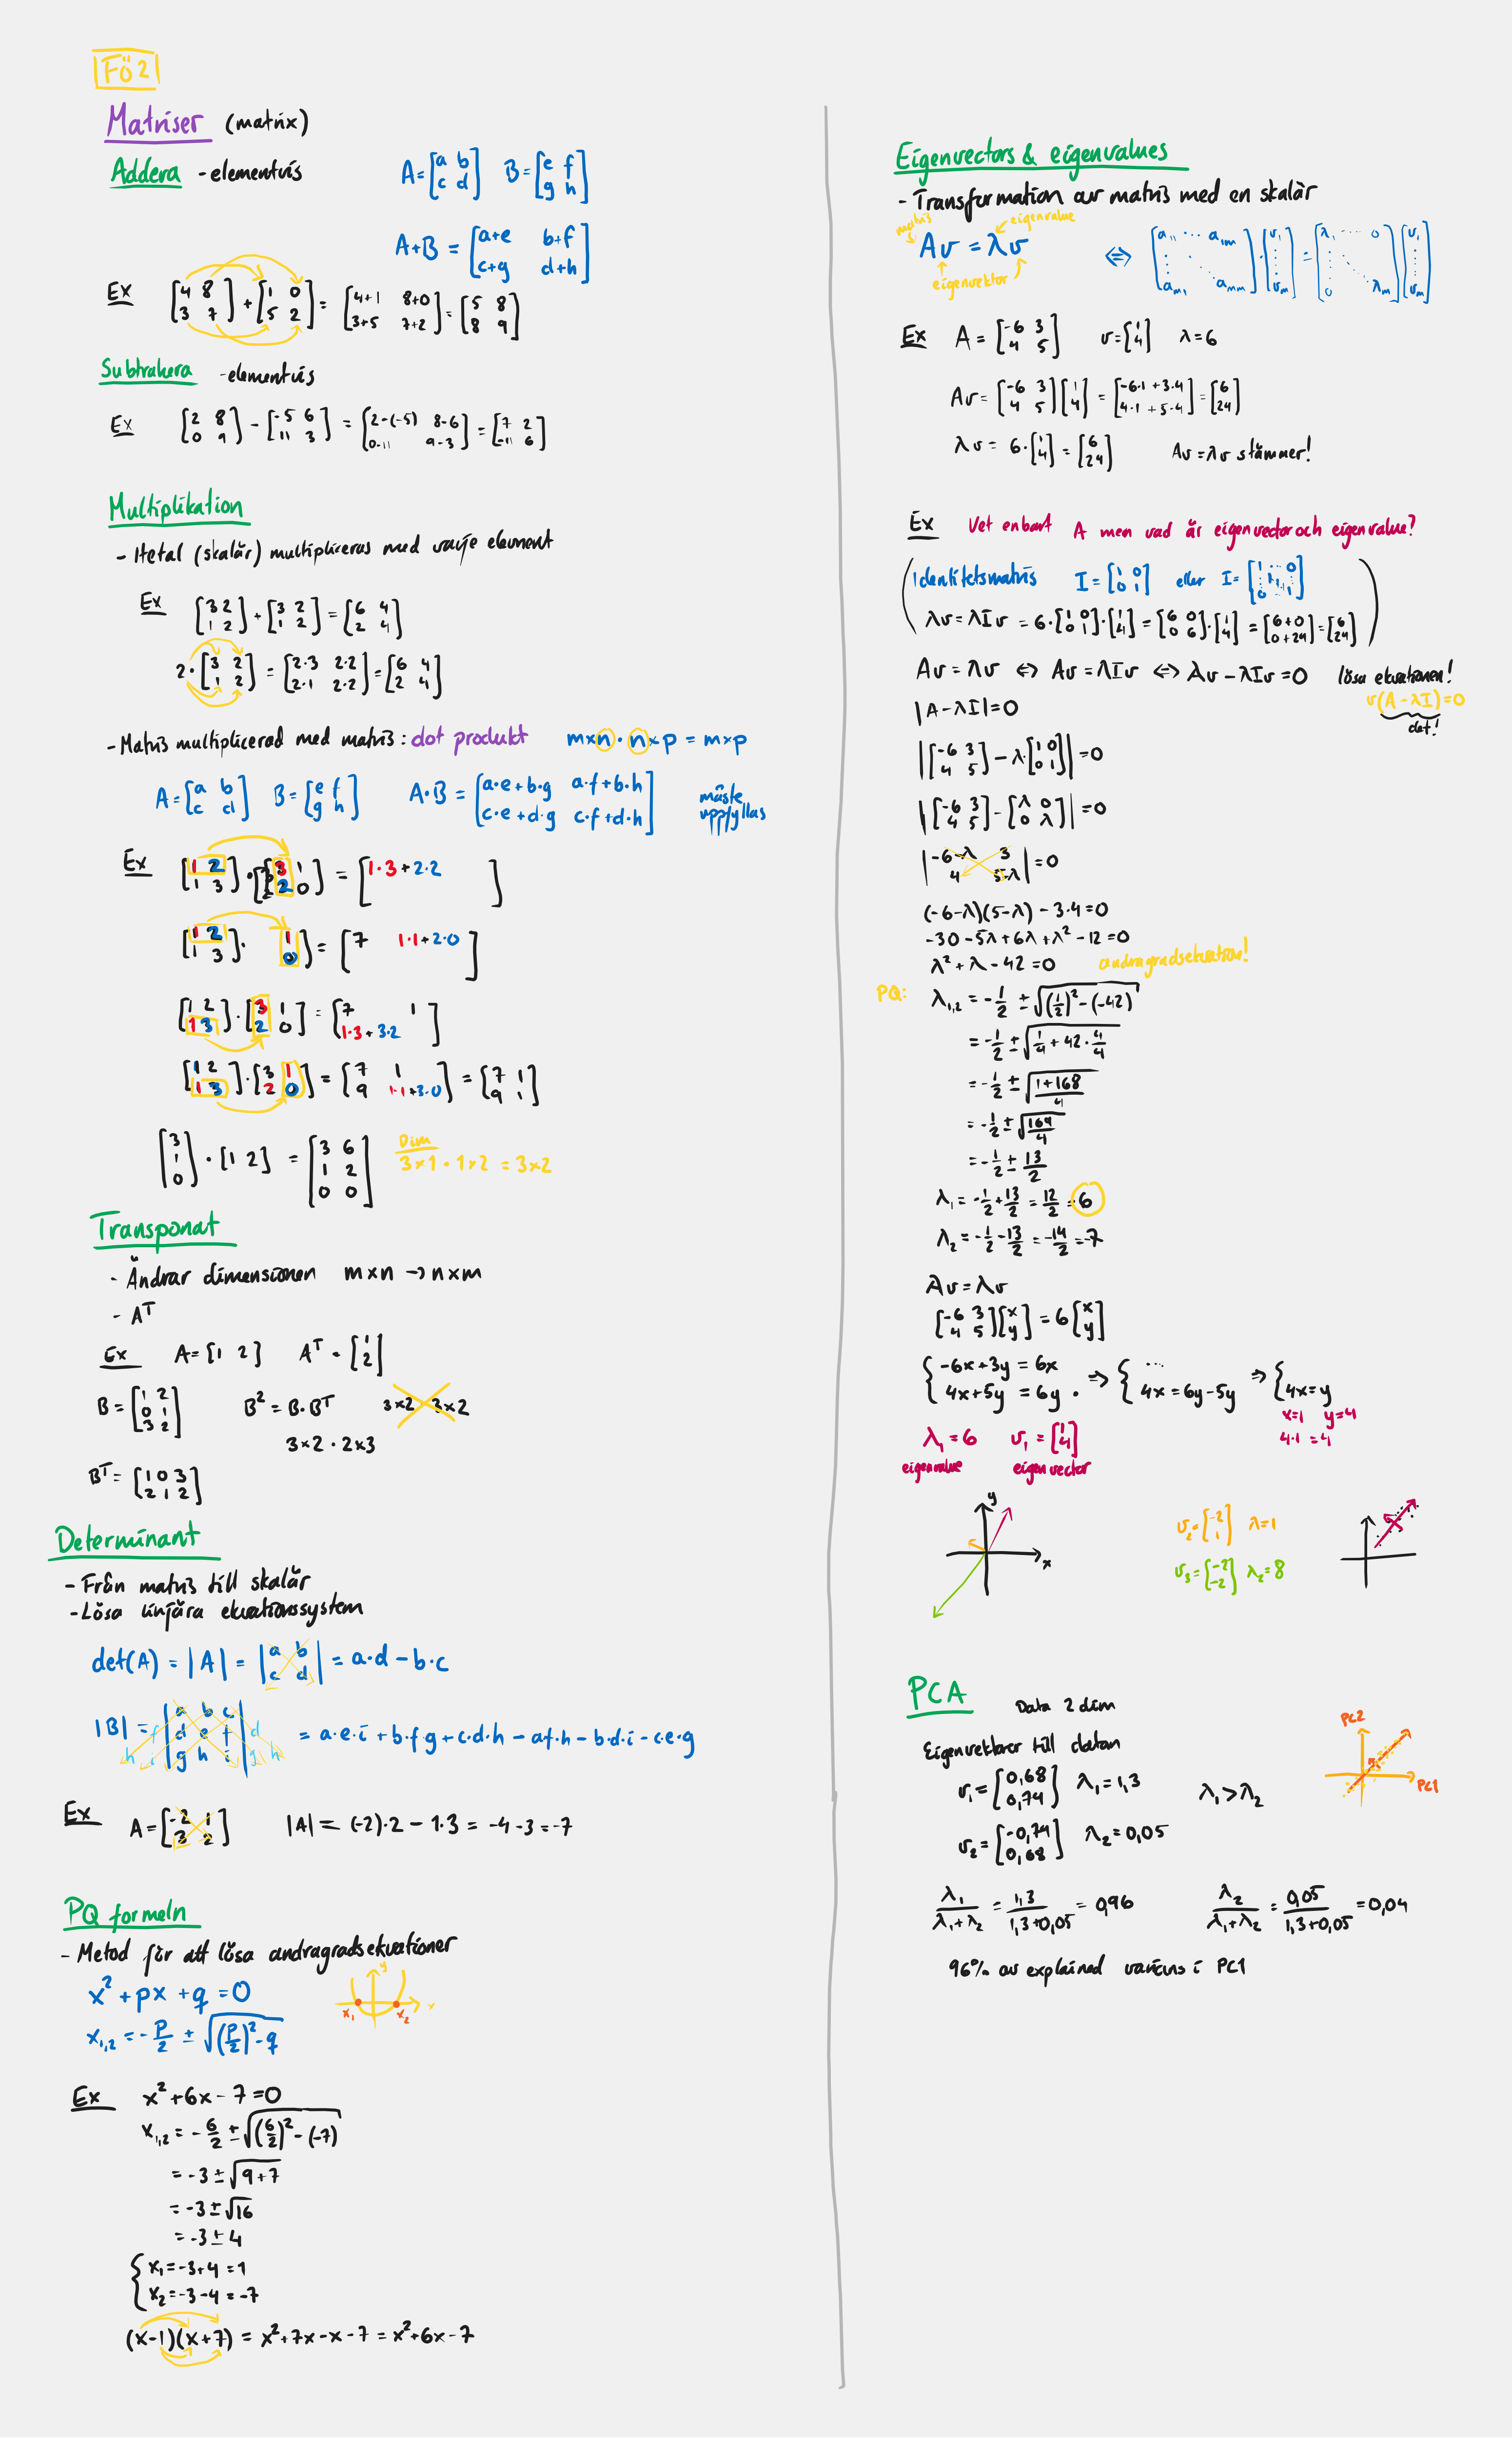 Fö 2
Matriser (matrix)
Addera - elementvis
A = [a b; c d] B = [e f; g h]
A+B = [a+e b+f; c+g d+h]
Ex [4 8; 3 7] + [1 0; 5 2] = [4+1 8+0; 3+5 7+2] = [5 8; 8 9]
Subtrahera - elementvis
Ex [2 8; 0 9] - [-5 6; 11 3] = [2-(-5) 8-6; 0-11 9-3] = [7 2; -11 6]
Multiplikation
- Heltal (skalär) multipliceras med varje element
Ex [3 2; 1 2] + [3 2; 1 2] = [6 4; 2 4]
2 · [3 2; 1 2] = [2·3 2·2; 2·1 2·2] = [6 4; 2 4]
- Matris multiplicerad med matris: dot produkt m×n · n×p = m×p
A = [a b; c d] B = [e f; g h] A·B = [a·e+b·g a·f+b·h; c·e+d·g c·f+d·h] måste uppfyllas
Ex [1 2; 1 3] · [3 1; 2 0] = [1·3+2·2 ]
[1 2; 1 3] · [1; 0] = [7 1·1+2·0 ]
[1 2; 1 3] · [3 1; 2 0] = [7 1; 1·3+3·2 ]
[1 2; 1 3] · [3 1; 2 0] = [7 1; 9 1·1+3·0] = [7 1; 9 1]
[3; 1; 0] · [1 2] = [3 6; 1 2; 0 0] Dim 3×1 · 1×2 = 3×2
Transponat
- Ändrar dimensionen m×n → n×m
- Aᵀ
Ex A = [1 2] Aᵀ = [1; 2]
B = [1 2; 0 1; 3 2] B² = B·Bᵀ 3×2 3×2
3×2 · 2×3
Bᵀ = [1 0 3; 2 1 2]
Determinant
- Från matris till skalär
- Lösa linjära ekvationssystem
det(A) = |A| = |a b; c d| = a·d - b·c
|B| = f |a b c; d e f; g h i| d h i g h = a·e·i + b·f·g + c·d·h - a·f·h - b·d·i - c·e·g
Ex A = [-2 1; 3 2] |A| = (-2)·2 - 1·3 = -4-3 = -7
PQ formeln
- Metod för att lösa andragradsekvationer
x² + px + q = 0
x₁,₂ = -p/2 ± √((p/2)² - q)
y x x₁ x₂
Ex x² + 6x - 7 = 0
x₁,₂ = -6/2 ± √((6/2)² - (-7))
= -3 ± √(9+7)
= -3 ± √16
= -3 ± 4
x₁ = -3+4 = 1
x₂ = -3-4 = -7
(x-1)(x+7) = x²+7x-x-7 = x²+6x-7
Eigenvectors & eigenvalues
- Transformation av matris med en skalär
matris eigenvalue
Av = λv ⇔ [a₁₁ ··· a₁m; ⋮ ⋱; am₁ amm] · [v₁; ⋮; vm] = [λ₁ ··· 0; ⋮ ⋱; 0 λm] [v₁; ⋮; vm]
eigenvektor
Ex A = [-6 3; 4 5] v = [1; 4] λ = 6
Av = [-6 3; 4 5] [1; 4] = [-6·1+3·4; 4·1+5·4] = [6; 24]
λv = 6·[1; 4] = [6; 24] Av = λv stämmer!
Ex Vet enbart A men vad är eigenvector och eigenvalue?
Identitetsmatris I = [1 0; 0 1] eller I = [1 ··· 0; ⋮ ⋱ ⋮; 0 ··· 1]
λv = λIv = 6·[1 0; 0 1]·[1; 4] = [6 0; 0 6]·[1; 4] = [6+0; 0+24] = [6; 24]
Av = λv ⇔ Av = λIv ⇔ Av - λIv = 0 lösa ekvationen!
v(A - λI) = 0
det!
|A - λI| = 0
|[-6 3; 4 5] - λ·[1 0; 0 1]| = 0
|[-6 3; 4 5] - [λ 0; 0 λ]| = 0
|-6-λ 3; 4 5-λ| = 0
(-6-λ)(5-λ) - 3·4 = 0
-30 - 5λ + 6λ + λ² - 12 = 0
λ² + λ - 42 = 0 andragradsekvation!
PQ: λ₁,₂ = -1/2 ± √((1/2)² - (-42))
= -1/2 ± √(1/4 + 42·4/4)
= -1/2 ± √((1+168)/4)
= -1/2 ± √(169/4)
= -1/2 ± 13/2
λ₁ = -1/2 + 13/2 = 12/2 = 6
λ₂ = -1/2 - 13/2 = -14/2 = -7
Av = λv
[-6 3; 4 5] [x; y] = 6 [x; y]
{-6x+3y = 6x; 4x+5y = 6y ⇒ {...; 4x = 6y-5y ⇒ {4x = y
x=1 y=4
4·1 = 4
λ₁ = 6 v₁ = [1; 4]
eigenvalue eigenvector
y x
v₂ = [-2; 1] λ = 1
v₃ = [-2; -2] λ₂ = 8
PCA Data 2 dim
Eigenvektorer till datan
v₁ = [0,68; 0,74] λ₁ = 1,3 λ₁ > λ₂
PC2 PC1
v₂ = [-0,74; 0,68] λ₂ = 0,05
λ₁/(λ₁+λ₂) = 1,3/(1,3+0,05) = 0,96 λ₂/(λ₁+λ₂) = 0,05/(1,3+0,05) = 0,04
96% av explained varians i PC1